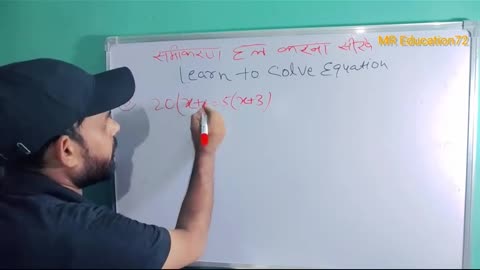 MR Education72
समीकरण हल करना सीखे
Learn to Solve Equation
20(x+ = 5(x+3)